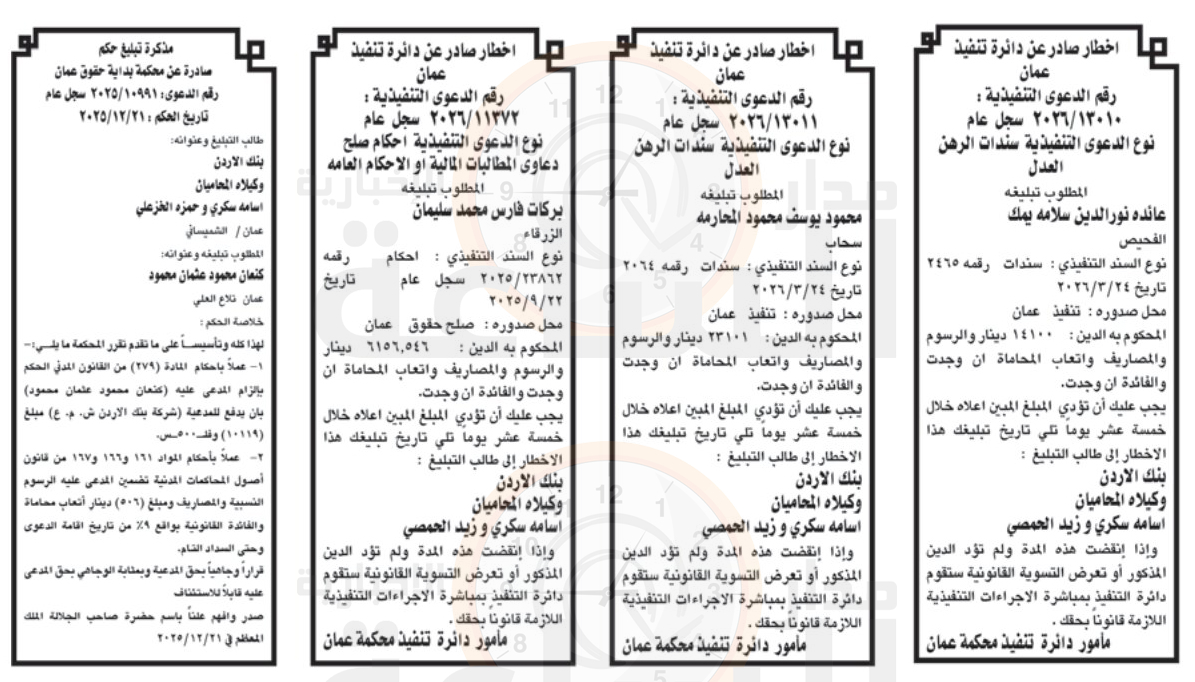 اخطار صادر عن دائرة تنفيذ
عمان
رقم الدعوى التنفيذية :
٢٠٢٦/١٣٠١٠ سجل عام
نوع الدعوى التنفيذية سندات الرهن
العدل
المطلوب تبليغه
عائده نورالدين سلامه يمك
الفحيص
نوع السند التنفيذي : سندات رقمه ٢٤٦٥
تاريخ ٢٠٢٦/٣/٢٤
محل صدوره : تنفيذ عمان
المحكوم به الدين : ١٤١٠٠ دينار والرسوم
والمصاريف واتعاب المحاماة ان وجدت
والفائدة ان وجدت.
يجب عليك أن تؤدي المبلغ المبين اعلاه خلال
خمسة عشر يوماً تلي تاريخ تبليغك هذا
الاخطار إلى طالب التبليغ :
بنك الاردن
وكيلاه المحاميان
اسامه سكري و زيد الحمصي
وإذا إنقضت هذه المدة ولم تؤد الدين
المذكور أو تعرض التسوية القانونية ستقوم
دائرة التنفيذ بمباشرة الاجراءات التنفيذية
اللازمة قانوناً بحقك .
مأمور دائرة تنفيذ محكمة عمان
اخطار صادر عن دائرة تنفيذ
عمان
رقم الدعوى التنفيذية :
٢٠٢٦/١٣٠١١ سجل عام
نوع الدعوى التنفيذية سندات الرهن
العدل
المطلوب تبليغه
محمود يوسف محمود المحارمه
سحاب
نوع السند التنفيذي : سندات رقمه ٢٠٦٤
تاريخ ٢٠٢٦/٣/٢٤
محل صدوره : تنفيذ عمان
المحكوم به الدين : ٢٣١٠١ دينار والرسوم
والمصاريف واتعاب المحاماة ان وجدت
والفائدة ان وجدت.
يجب عليك أن تؤدي المبلغ المبين اعلاه خلال
خمسة عشر يوماً تلي تاريخ تبليغك هذا
الاخطار إلى طالب التبليغ :
بنك الاردن
وكيلاه المحاميان
اسامه سكري و زيد الحمصي
وإذا إنقضت هذه المدة ولم تؤد الدين
المذكور أو تعرض التسوية القانونية ستقوم
دائرة التنفيذ بمباشرة الاجراءات التنفيذية
اللازمة قانوناً بحقك .
مأمور دائرة تنفيذ محكمة عمان
اخطار صادر عن دائرة تنفيذ
عمان
رقم الدعوى التنفيذية :
٢٠٢٦/١١٣٧٢ سجل عام
نوع الدعوى التنفيذية احكام صلح
دعاوى المطالبات المالية او الاحكام العامه
المطلوب تبليغه
بركات فارس محمد سليمان
الزرقاء
نوع السند التنفيذي : احكام رقمه
٢٠٢٥/٢٣٨٦٢ سجل عام تاريخ
٢٠٢٥/٩/٢٢
محل صدوره : صلح حقوق عمان
المحكوم به الدين : ٦١٥٦,٥٤٦ دينار
والرسوم والمصاريف واتعاب المحاماة ان
وجدت والفائدة ان وجدت.
يجب عليك أن تؤدي المبلغ المبين اعلاه خلال
خمسة عشر يوماً تلي تاريخ تبليغك هذا
الاخطار إلى طالب التبليغ :
بنك الاردن
وكيلاه المحاميان
اسامه سكري و زيد الحمصي
وإذا إنقضت هذه المدة ولم تؤد الدين
المذكور أو تعرض التسوية القانونية ستقوم
دائرة التنفيذ بمباشرة الاجراءات التنفيذية
اللازمة قانوناً بحقك .
مأمور دائرة تنفيذ محكمة عمان
مذكرة تبليغ حكم
صادرة عن محكمة بداية حقوق عمان
رقم الدعوى: ٢٠٢٥/١٠٩٩١ سجل عام
تاريخ الحكم : ٢٠٢٥/١٢/٢١
طالب التبليغ وعنوانه:
بنك الاردن
وكيلاه المحاميان
اسامه سكري و حمزه الخزعلي
عمان / الشميساني
المطلوب تبليغه وعنوانه:
كنعان محمود عثمان محمود
عمان تلاع العلي
خلاصة الحكم :
لهذا كله وتأسيسـاً على ما تقدم تقرر المحكمة ما يلـي:-
١- عملاً بأحكام المادة (٢٧٩) من القانون المدني الحكم
بإلزام المدعى عليه (كنعان محمود عثمان محمود)
بان يدفع للمدعية (شركة بنك الاردن ش. م. ع) مبلغ
(١٠١١٩) وفلـ٥٠٠ـس.
٢- عملاً بأحكام المواد ١٦١ و١٦٦ و١٦٧ من قانون
أصول المحاكمات المدنية تضمين المدعى عليه الرسوم
النسبية والمصاريف ومبلغ (٥٠٦) دينار أتعاب محاماة
والفائدة القانونية بواقع ٩٪ من تاريخ اقامة الدعوى
وحتى السداد التام.
قراراً وجاهياً بحق المدعية وبمثابة الوجاهي بحق المدعى
عليه قابلاً للاستئناف
صدر وافهم علناً باسم حضرة صاحب الجلالة الملك
المعظم في ٢٠٢٥/١٢/٢١
مدار الساعة الإخبارية